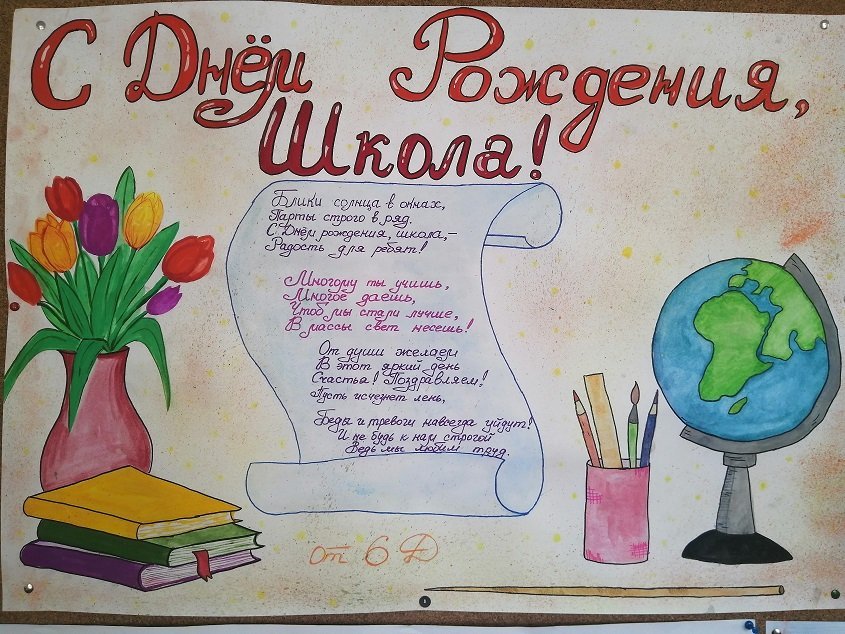 С Днём Рождения,
Школа!
Блики солнца в окнах,
Парты строго в ряд.
С Днём рождения, школа,-
Радость для ребят!
Многому ты учишь,
Многое даёшь,
Чтоб мы стали лучше,
В массы свет несёшь!
От души желаем
В этот яркий день
Счастья! Поздравляем!
Пусть исчезнет лень,
Беды и тревоги навсегда уйдут!
И не будь к нам строгой
Ведь мы любим труд.
От 6 Д